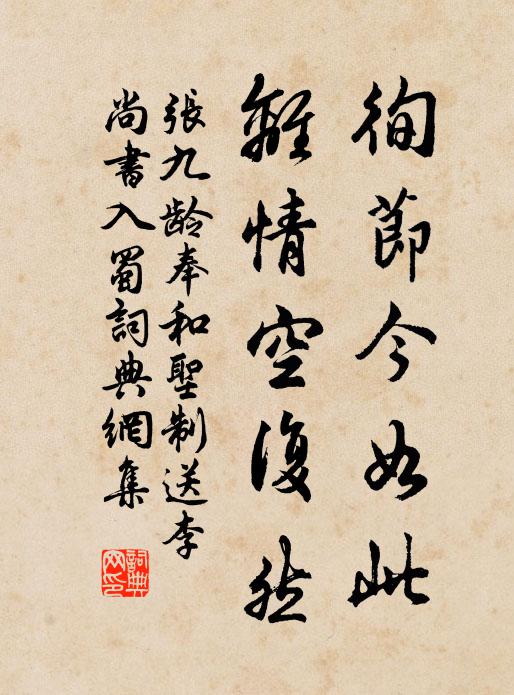 徇節今如此
離情空復然
張九齡奉和聖制送李
尚書入蜀詞典網集
詞典網印